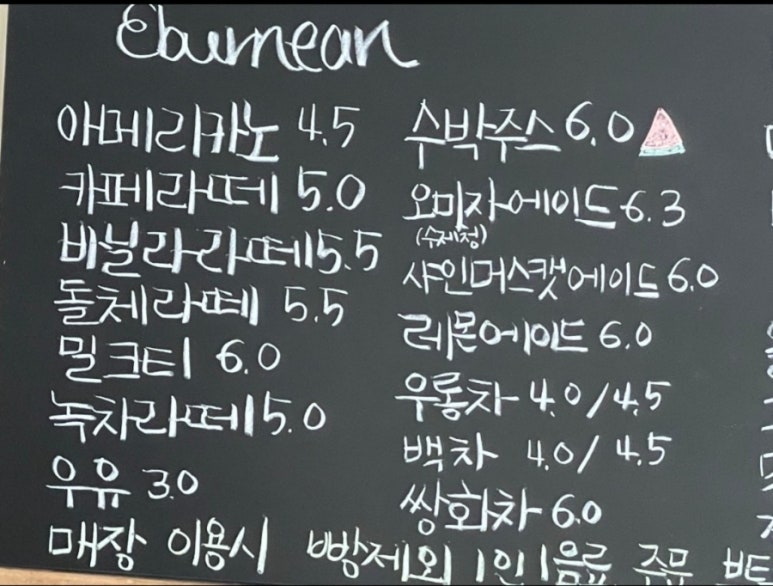 Eburnean
아메리카노 4.5
카페라떼 5.0
바닐라라떼 5.5
돌체라떼 5.5
밀크티 6.0
녹차라떼 5.0
우유 3.0
수박주스 6.0
오미자에이드 6.3
(수제청)
샤인머스캣에이드 6.0
레몬에이드 6.0
우롱차 4.0/4.5
백차 4.0/4.5
쌍화차 6.0
매장 이용시 빵제외 1인 1음료 주문